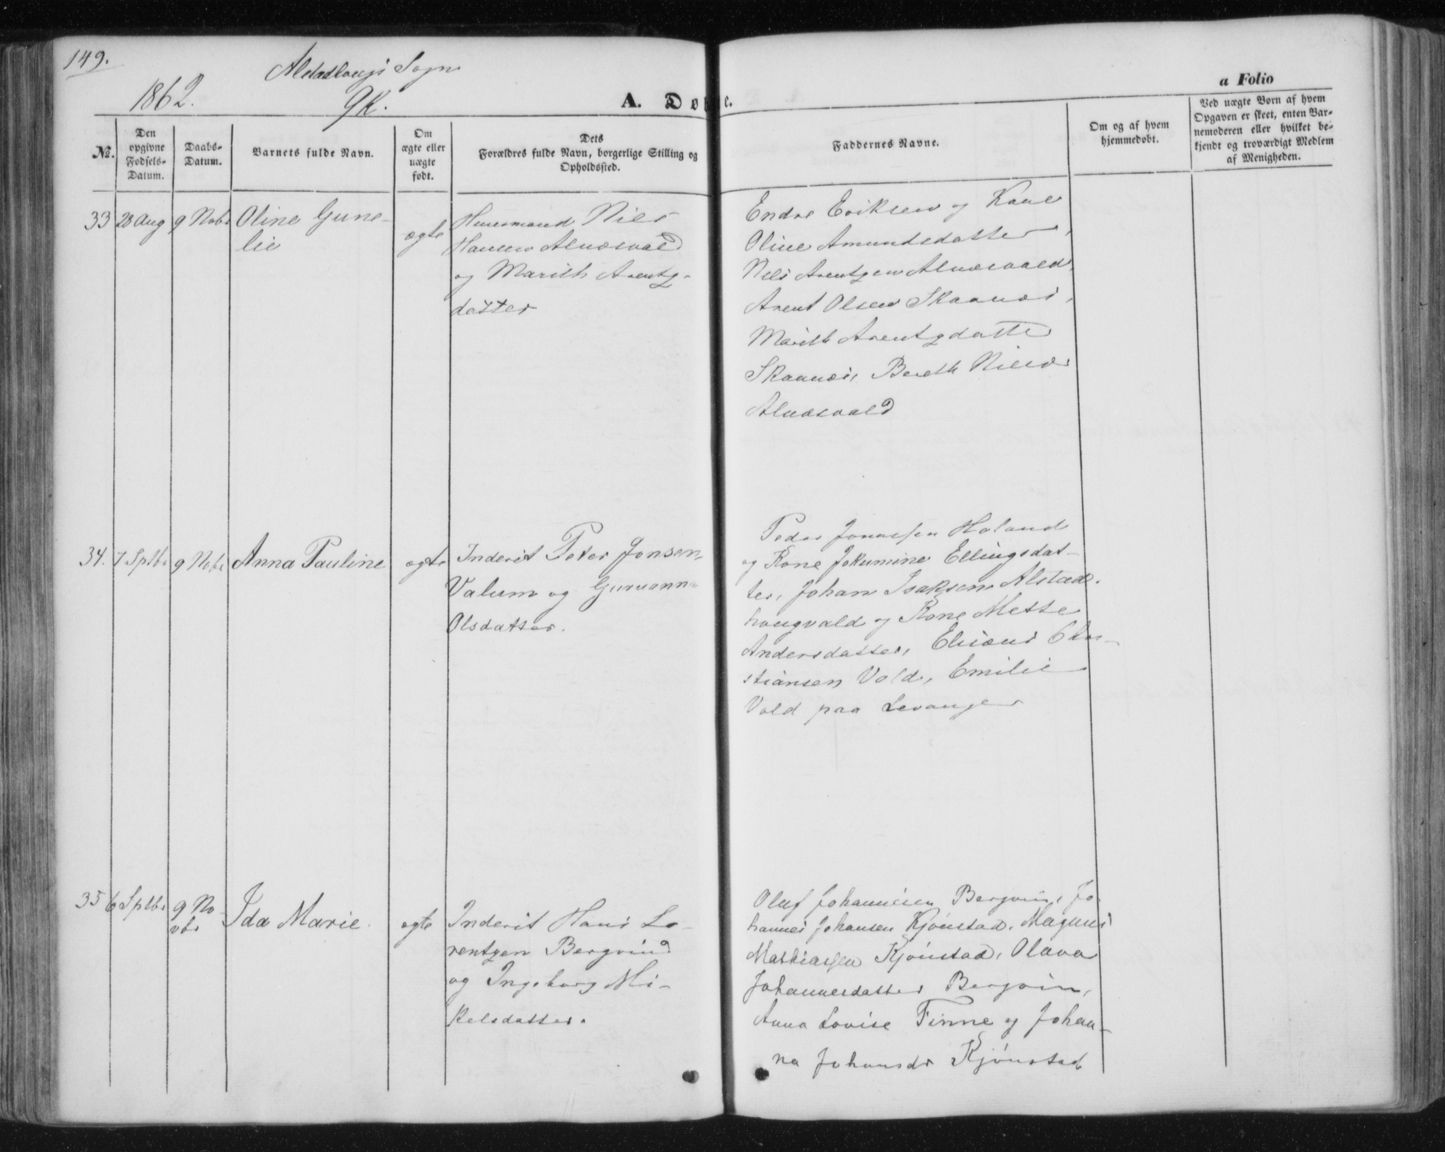 149.
Alstadhougs Sogn
1862.
A. Døbte.
a Folio
№.
Den
opgivne
Fødsels-
Datum.
Daabs-
Datum.
Barnets fulde Navn.
Om
ægte eller
uægte
født.
Dets
Forældres fulde Navn, borgerlige Stilling og
Opholdssted.
Faddernes Navne.
Om og af hvem
hjemmedøbt.
Ved uægte Børn af hvem
Opgaven er skeet, enten Bar-
nemoderen eller hvilket be-
kjendt og troværdigt Medlem
af Menigheden.
33 28 Aug 9 Nobr Oline Gune-
lie
ægte
Huusmand Nils
Hansen Alnæsvald
og Marith Arentz-
datter
Endre Eriksen og Kone
Oline Amundsdatter,
Nils Arentzen Alnæsvald,
Arent Olsen Skaanæs,
Marith Arentzdatter
Skaanæs, Bereth Nilsd
Alnæsvald
34. 7 Sptbr 9 Nobr Anna Pauline ægte
Inderst Peter Jonsen
Valum og Guruanna
Olsdatter.
Peder Jonassen Holand
og Kone Jokumine Ellingsdat-
ter, Johan Isaksen Alstad-
hougvald og Kone Mette
Andersdatter, Elisæus Chri-
stiansen Vold, Emilie
Vold paa Levanger
35 6 Sptbr 9 No-
vbr
Ida Marie. ægte
Inderst Hans Lo-
rentzen Bergvin
og Ingeborg Mi-
kelsdatter.
Oluf Johannesen Bergvin, Jo-
hannes Johansen Kjønstad, Magnus
Mathiassen Kjønstad, Olava
Johannesdatter Bergvin,
Anna Lovise Finne og Johan-
na Johansdr Kjønstad